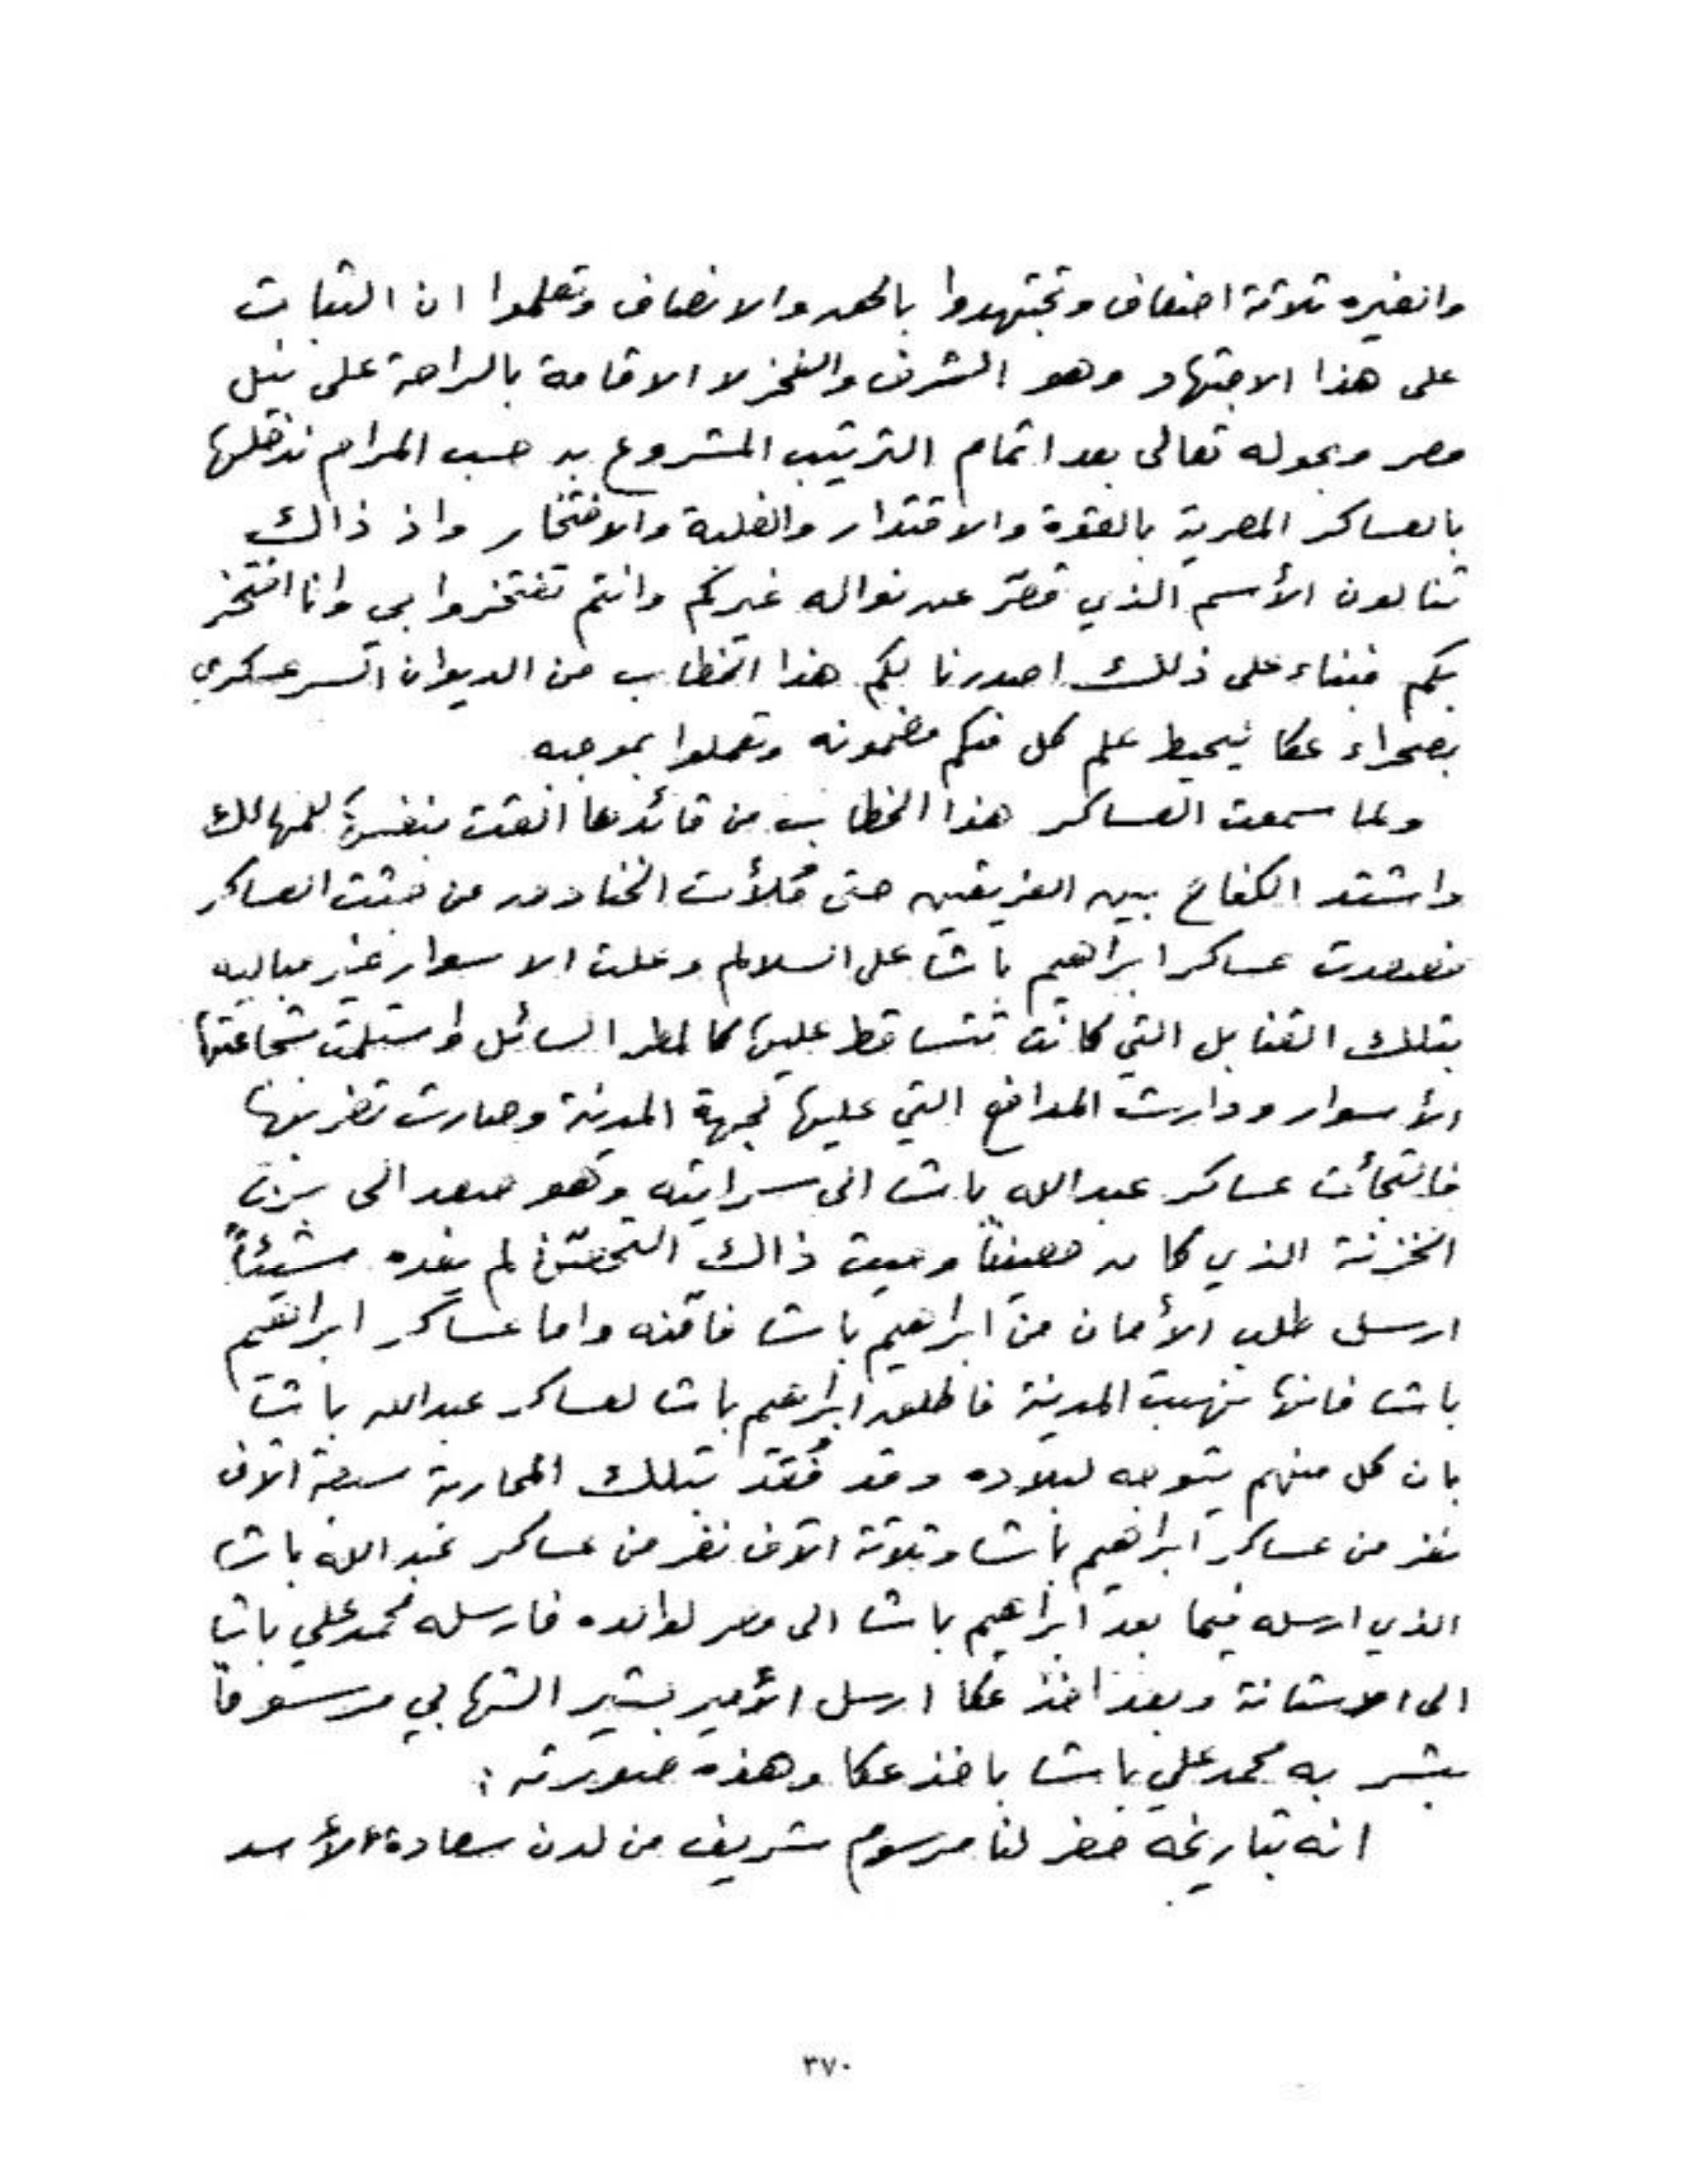 والغيره ثلاثة اضعاف وتجتهدوا بالحق والانصاف وتعلموا ان الثبات
على هذا الاجتهاد وهو الشرف والفخر لا الاقامة بالراحة على نيل
مصر وبحوله تعالى بعد اتمام الترتيب المشروع به حسب المرام ندخلها
بالعساكر المصرية بالقوة والاقتدار والغلبة والافتخار واذ ذالك
تنالون الأسم الذي قصّر عن نواله غيركم وانتم تفتخروا بي وانا افتخر
بكم فبناء على ذلك اصدرنا لكم هذا الخطاب من الديوان السر عسكري
بصحراء عكا ليحيط علم كل منكم مضمونه وتعملوا بموجبه
ولما سمعت العساكر هذا الخطاب من قائدها القت بنفسها للمهالك
واشتد الكفاح بين الفريقين حتى مُلأت الخنادق من جثث العساكر
فصعدت عساكر ابراهيم باشا على السلالم وعلت الاسوار غير مباليه
بتلك القنابل التي كانت تتساقط عليها كالمطر السائل واستلمت بشجاعتها
الأسوار ودارت المدافع التي عليها لجهة المدينة وصارت تضربها
فالتجأت عساكر عبدالله باشا الى سرايته وهو صعد الى برج
الخزنة الذي كان حصيناً وحيث ذالك التحصّن لم يفده شيئاً
ارسل طلب الأمان من ابراهيم باشا فامّنه واما عساكر ابراهيم
باشا فانها نهبت المدينة فاطلق ابراهيم باشا لعساكر عبدالله باشا
بان كل منهم يتوجه لبلاده وقد فُقد بتلك المحاربة سبعة الآف
نفر من عساكر ابراهيم باشا وثلاثة الآف نفر من عساكر عبدالله باشا
الذي ارسله فيما بعد ابراهيم باشا الى مصر لوالده فارسله محمد علي باشا
الى الاستانة وبعد اخذ عكا ارسل الأمير بشير الشهابي مرسوماً
يبشر به محمد علي باشا باخذ عكا وهذه صورته :
انه بتاريخه حضر لنا مرسوم شريف من لدن سعادة الأسد
٣٧٠